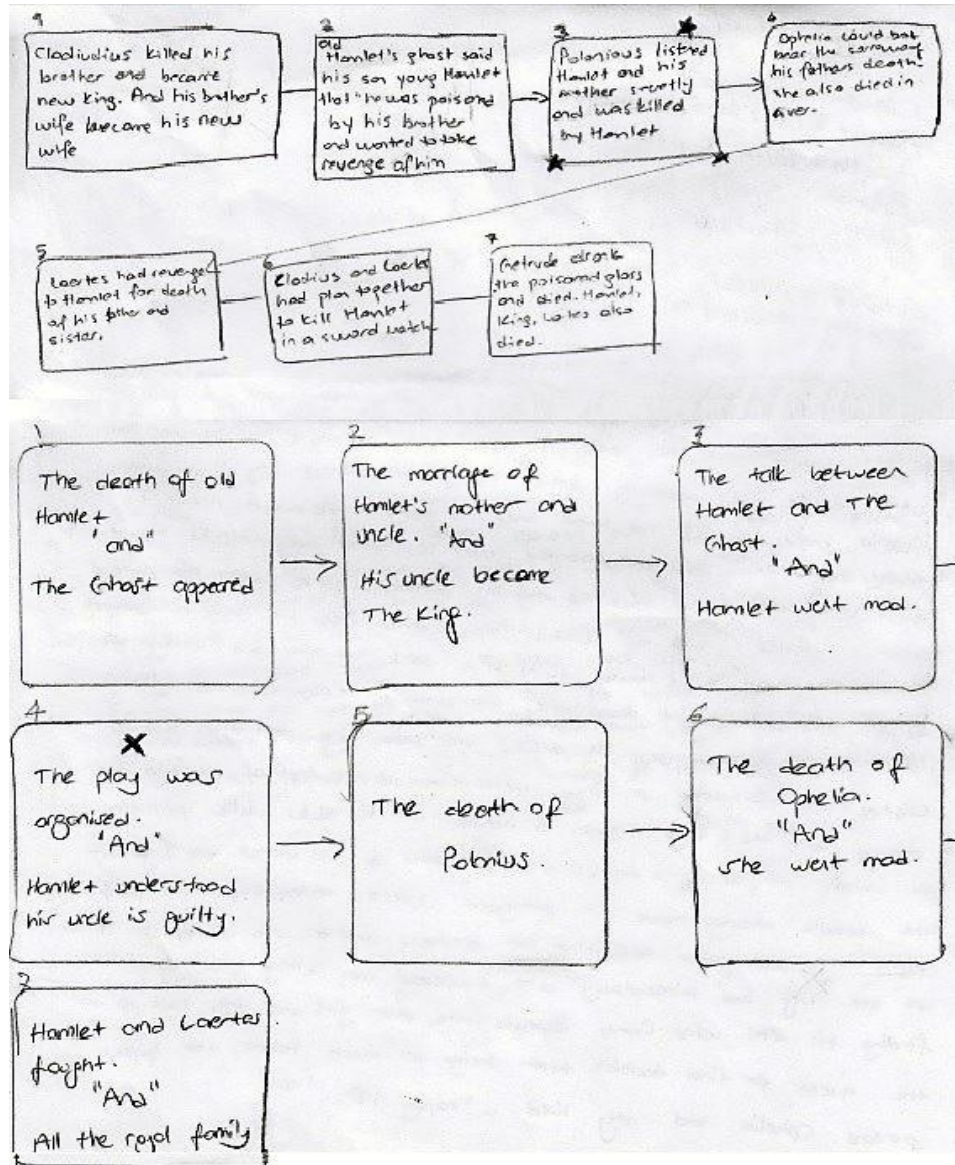 1
Cladiudius killed his
brother and became
new king. And his brother's
wife became his new
wife
2
old
Hamlet's ghost said
his son young Hamlet
that "he was poisond
by his brother
and wanted to take
revenge of him
3
Polonious listned
Hamlet and his
mother secretly
and was killed
by Hamlet
4
Ophelia could not
bear the sorrow of
his fathers death.
she also died in
river.
5
Laertes had revenge
to Hamlet for death
of his father and
sister.
6
Cladius and Laertes
had plan together
to kill Hamlet
in a sword match
7
Getrude drank
the poisoned glass
and died. Hamlet,
King, also
died.
1
The death of old
Hamlet
"and"
The Ghost appeared
2
The marriage of
Hamlet's mother and
uncle. "And"
His uncle became
The King.
3
The talk between
Hamlet and The
Ghost.
"And"
Hamlet went mad.
4
The play was
organised.
"And"
Hamlet understood
his uncle is guilty.
5
The death of
Polonius.
6
The death of
Ophelia.
"And"
she went mad.
7
Hamlet and Laertes
fought.
"And"
All the royal family